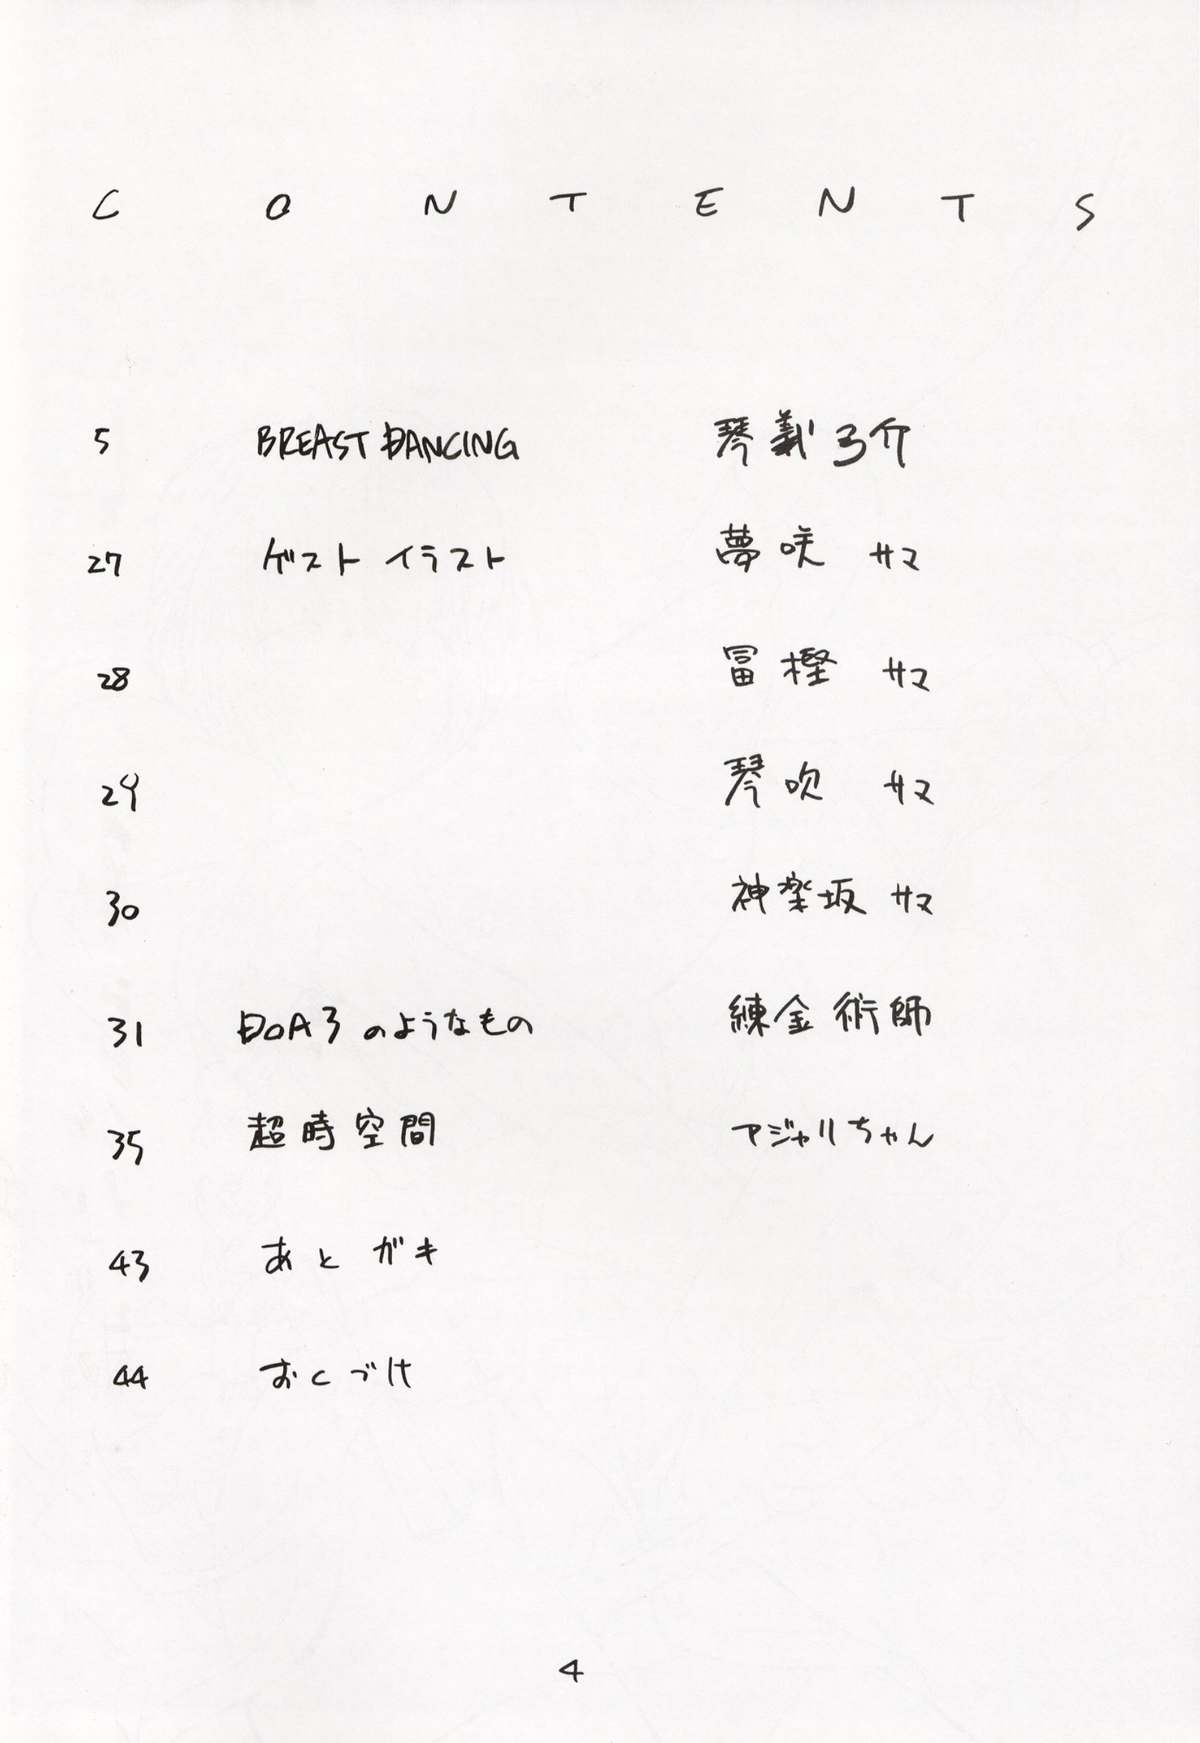 CONTENTS
5 BREAST DANCING 琴義弓介
27 ゲスト イラスト 夢咲 サマ
28 冨樫 サマ
29 琴吹 サマ
30 神楽坂 サマ
31 DOA3のようなもの 錬金術師
35 超時空間 アジャリちゃん
43 あとガキ
44 おくづけ
4